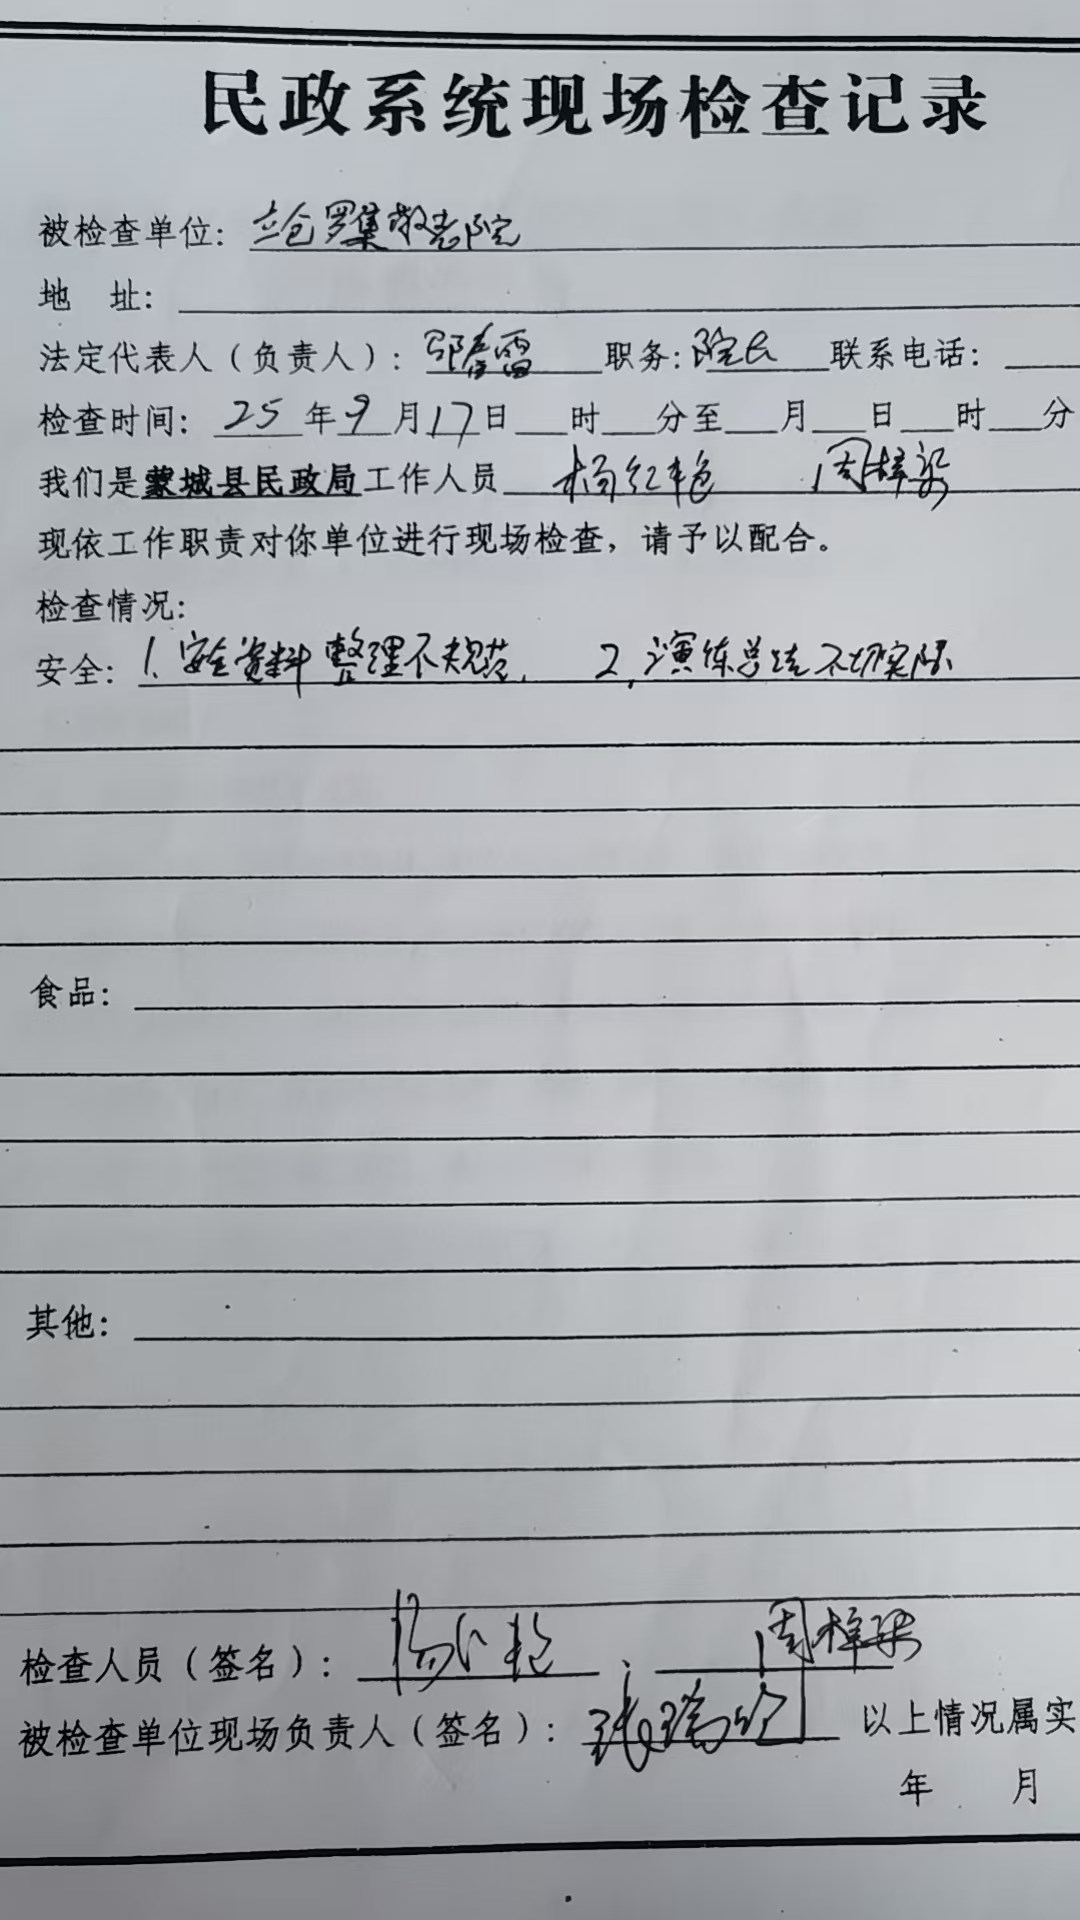 民政系统现场检查记录
被检查单位：立仓罗集敬老院
地 址：
法定代表人（负责人）：邹春雷 职务：院长 联系电话：
检查时间：25年9月17日 时 分至 月 日 时 分
我们是蒙城县民政局工作人员 杨红艳 周梓梁
现依工作职责对你单位进行现场检查，请予以配合。
检查情况：
安全：1、安全资料整理不规范， 2，演练总结不切实际
食品：
其他：
检查人员（签名）：杨红艳、周梓梁
被检查单位现场负责人（签名）： 以上情况属实
年 月